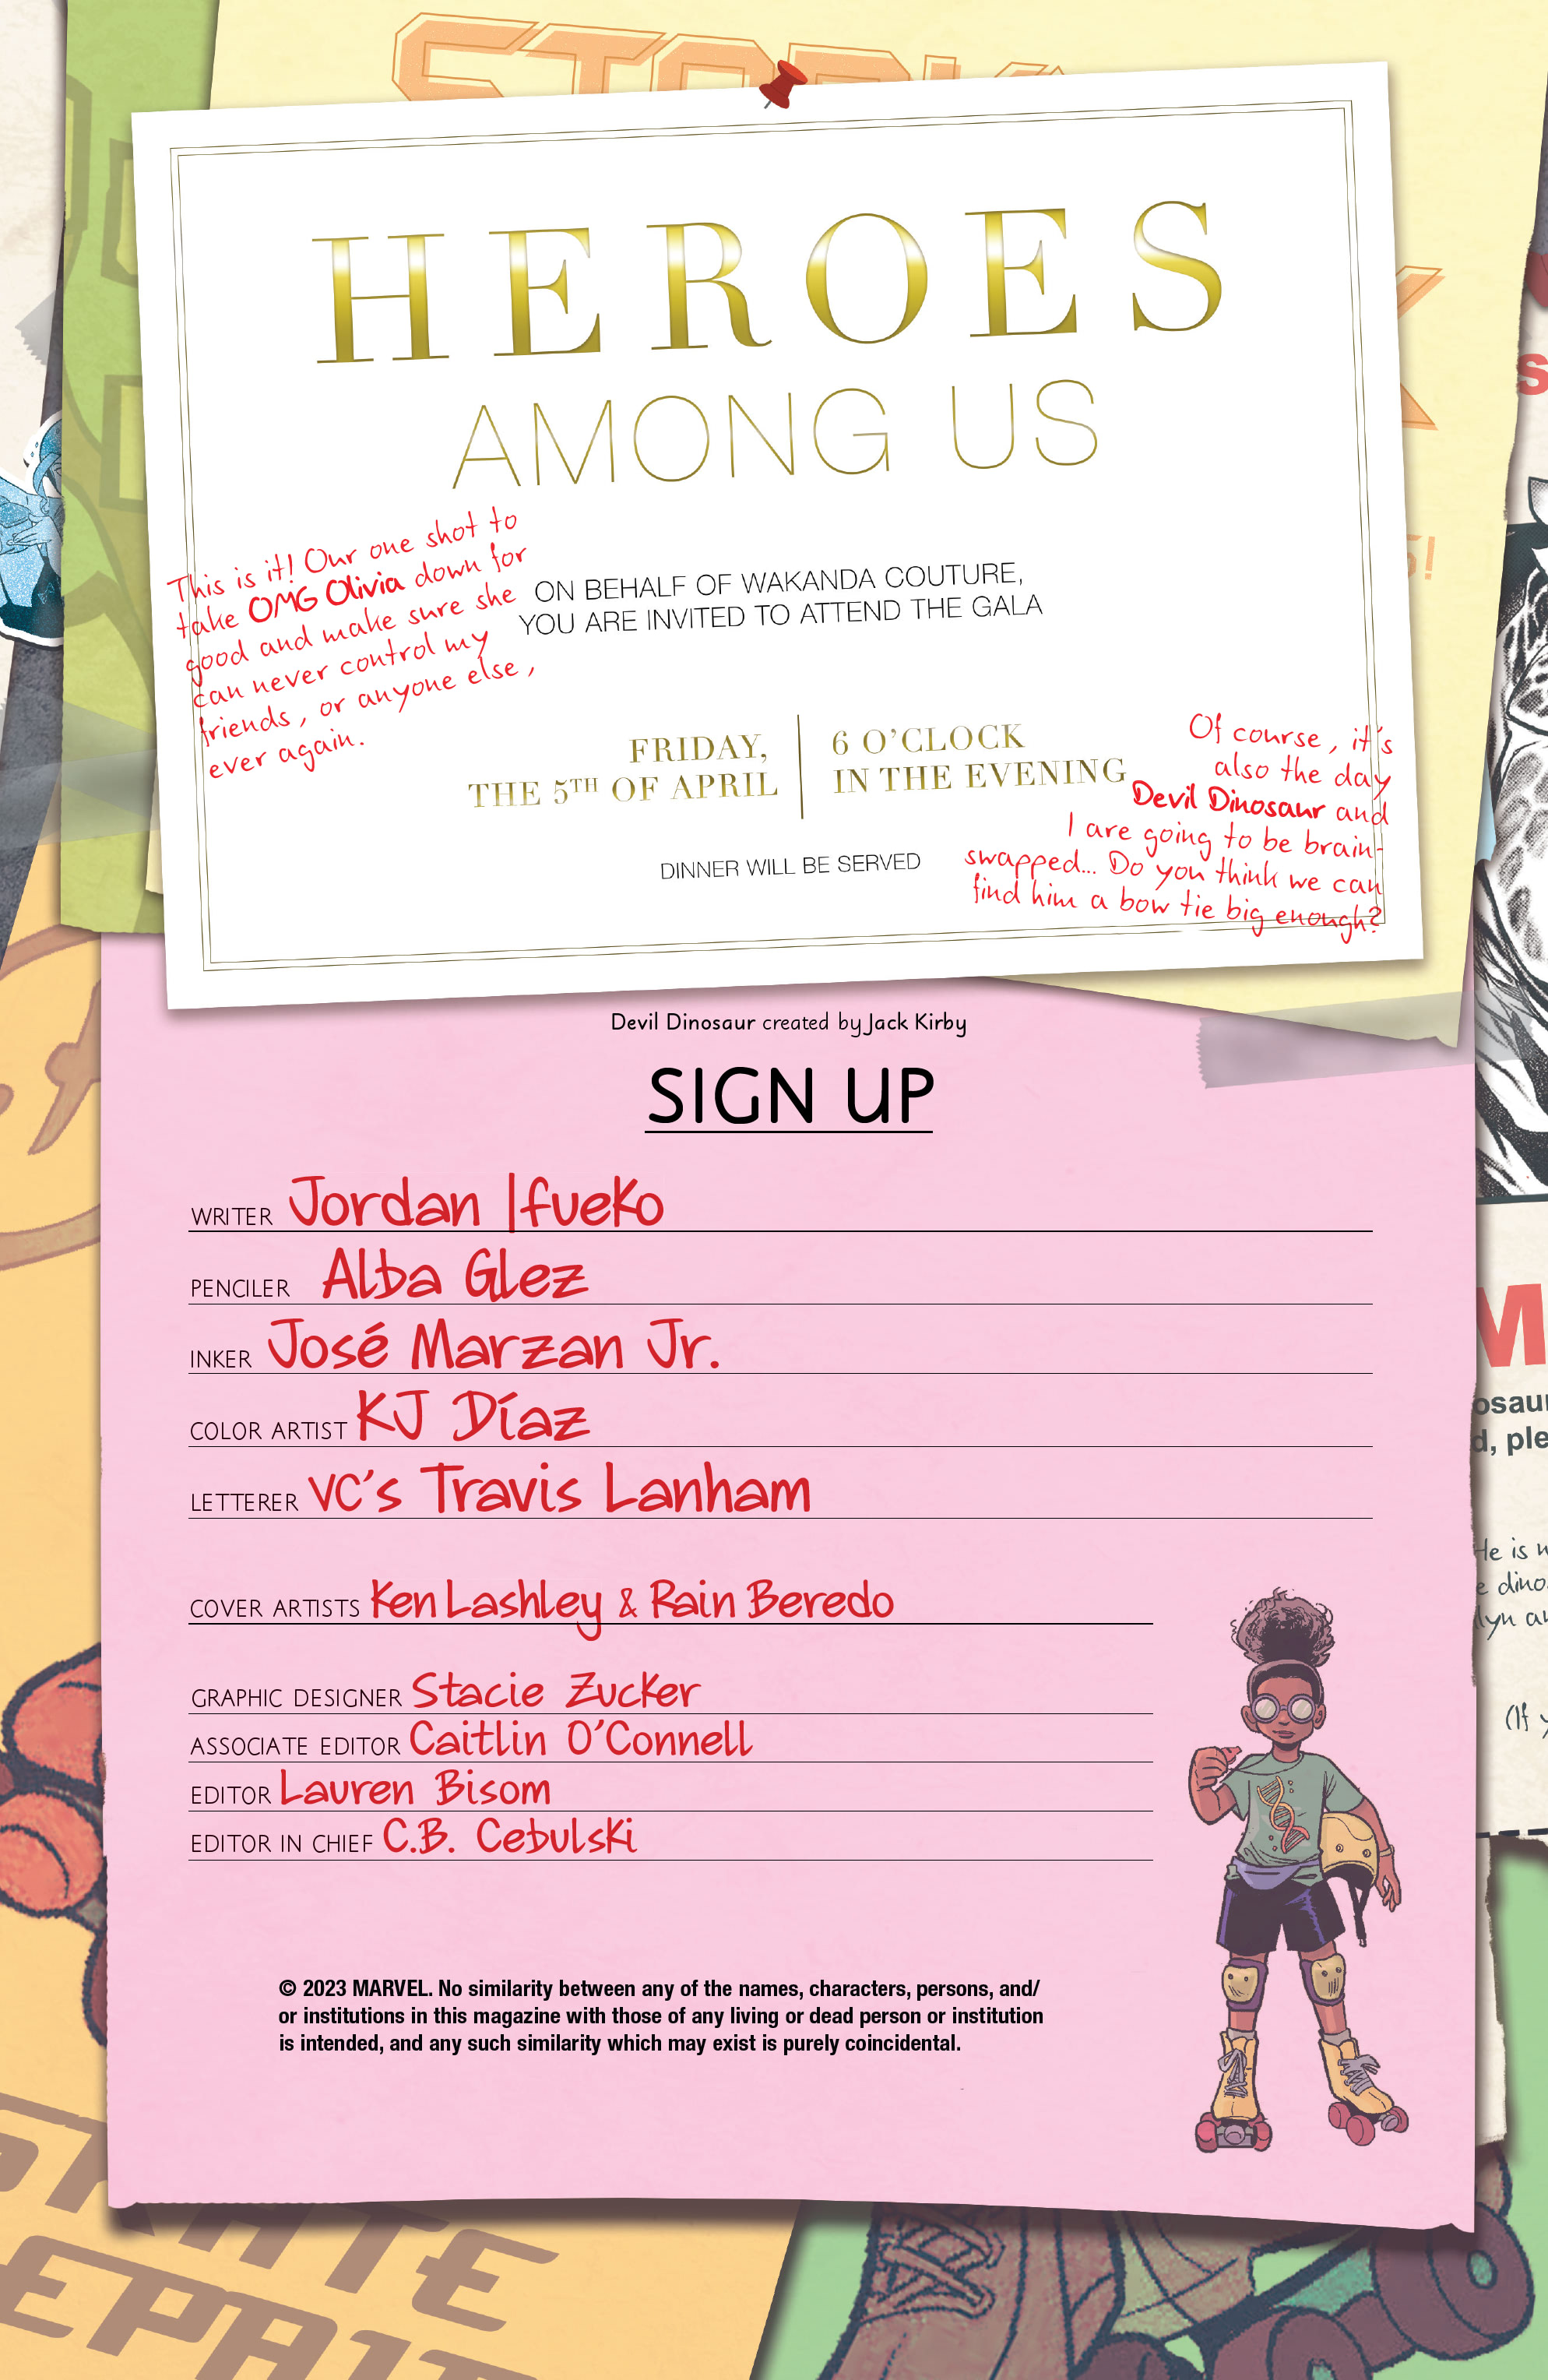 HEROES
AMONG US
This is it! Our one shot to
take OMG Olivia down for
good and make sure she
can never control my
friends, or anyone else,
ever again.
ON BEHALF OF WAKANDA COUTURE,
YOU ARE INVITED TO ATTEND THE GALA
FRIDAY,
THE 5TH OF APRIL
6 O'CLOCK
IN THE EVENING
DINNER WILL BE SERVED
Of course, it's
also the day
Devil Dinosaur and
I are going to be brain-
swapped... Do you think we can
find him a bow tie big enough?
Devil Dinosaur created by Jack Kirby
SIGN UP
WRITER Jordan Ifueko
PENCILER Alba Glez
INKER José Marzan Jr.
COLOR ARTIST KJ Díaz
LETTERER VC's Travis Lanham
COVER ARTISTS Ken Lashley & Rain Beredo
GRAPHIC DESIGNER Stacie Zucker
ASSOCIATE EDITOR Caitlin O'Connell
EDITOR Lauren Bisom
EDITOR IN CHIEF C.B. Cebulski
© 2023 MARVEL. No similarity between any of the names, characters, persons, and/
or institutions in this magazine with those of any living or dead person or institution
is intended, and any such similarity which may exist is purely coincidental.
He is
(If